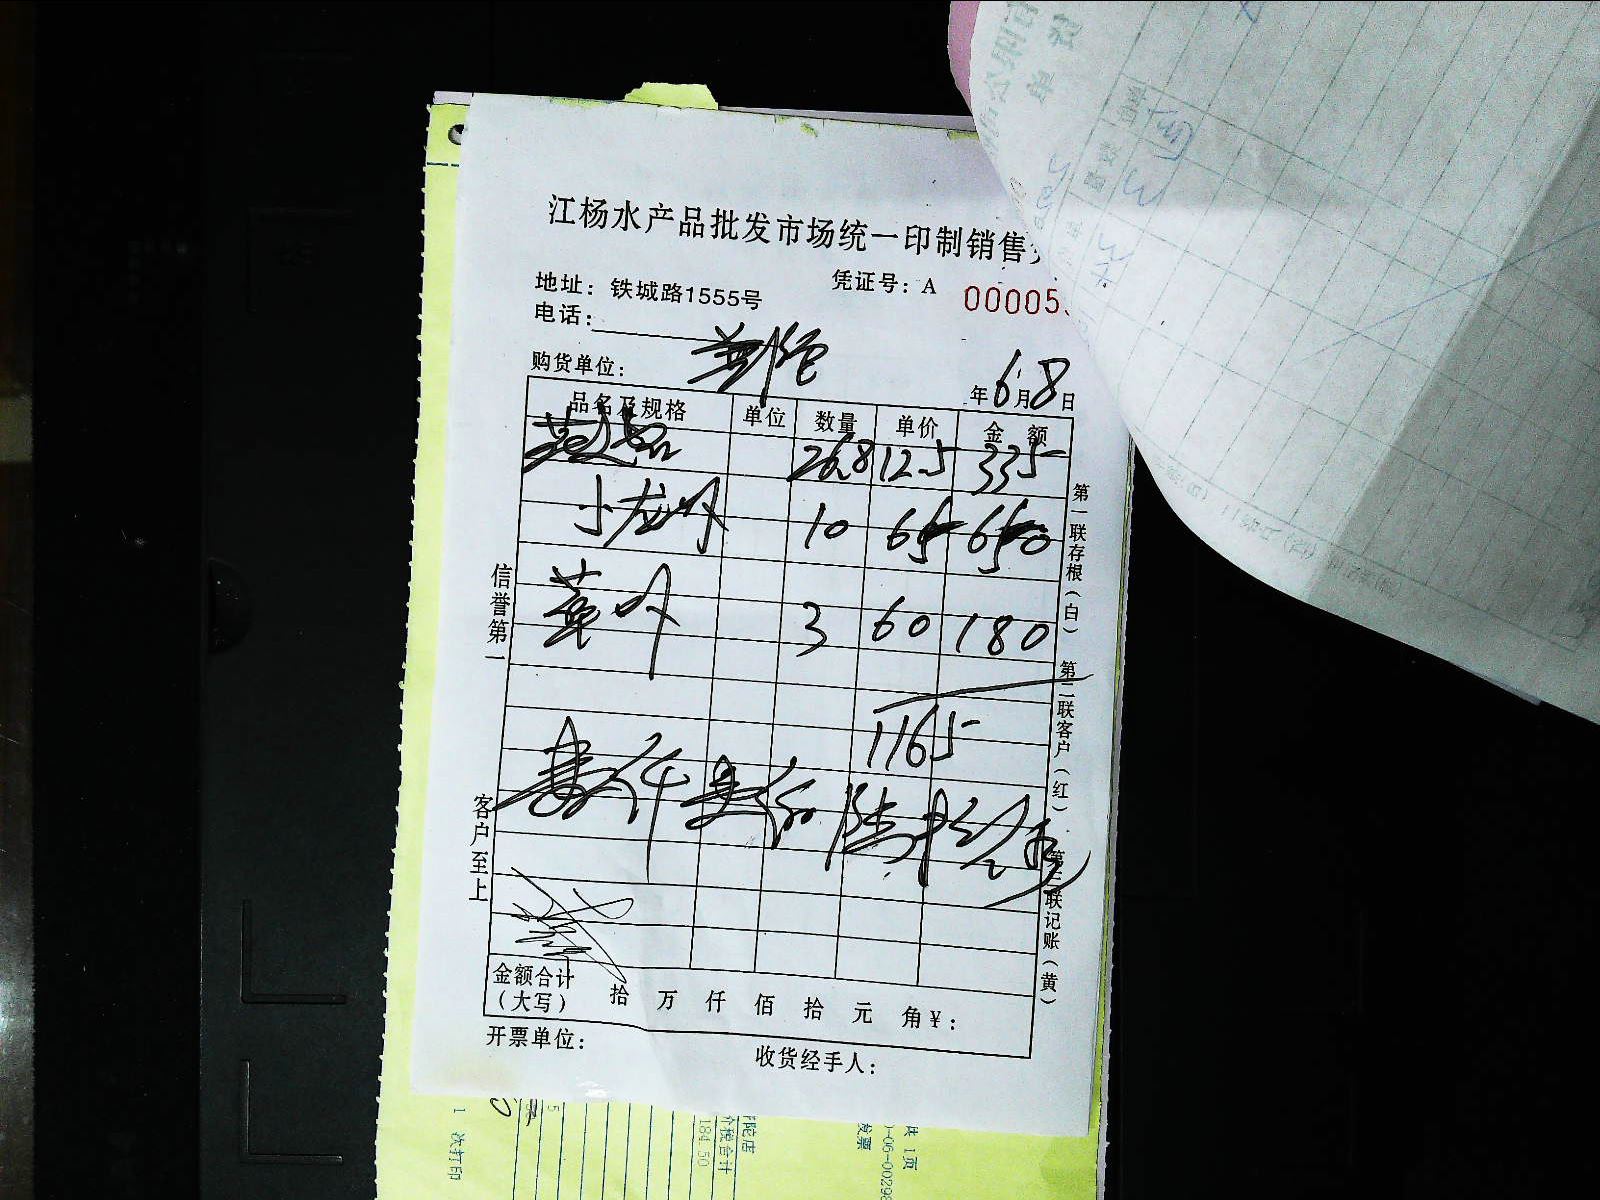 江杨水产品批发市场统一印制销售
凭证号：A 00005
地址：铁城路1555号
电话：
购货单位： 普陀
年6月8日
品名及规格 单位 数量 单价 金额
26.8 12.5 335
小龙虾 10 65 650
草虾 3 60 180
1165
壹仟壹佰陆拾伍
金额合计
（大写） 拾 万 仟 佰 拾 元 角 ¥：
开票单位：
收货经手人：
信誉第一
客户至上
第一联存根（白）
第二联客户（红）
第三联记账（黄）
1 次打印
价税合计
184.50
发票
1页